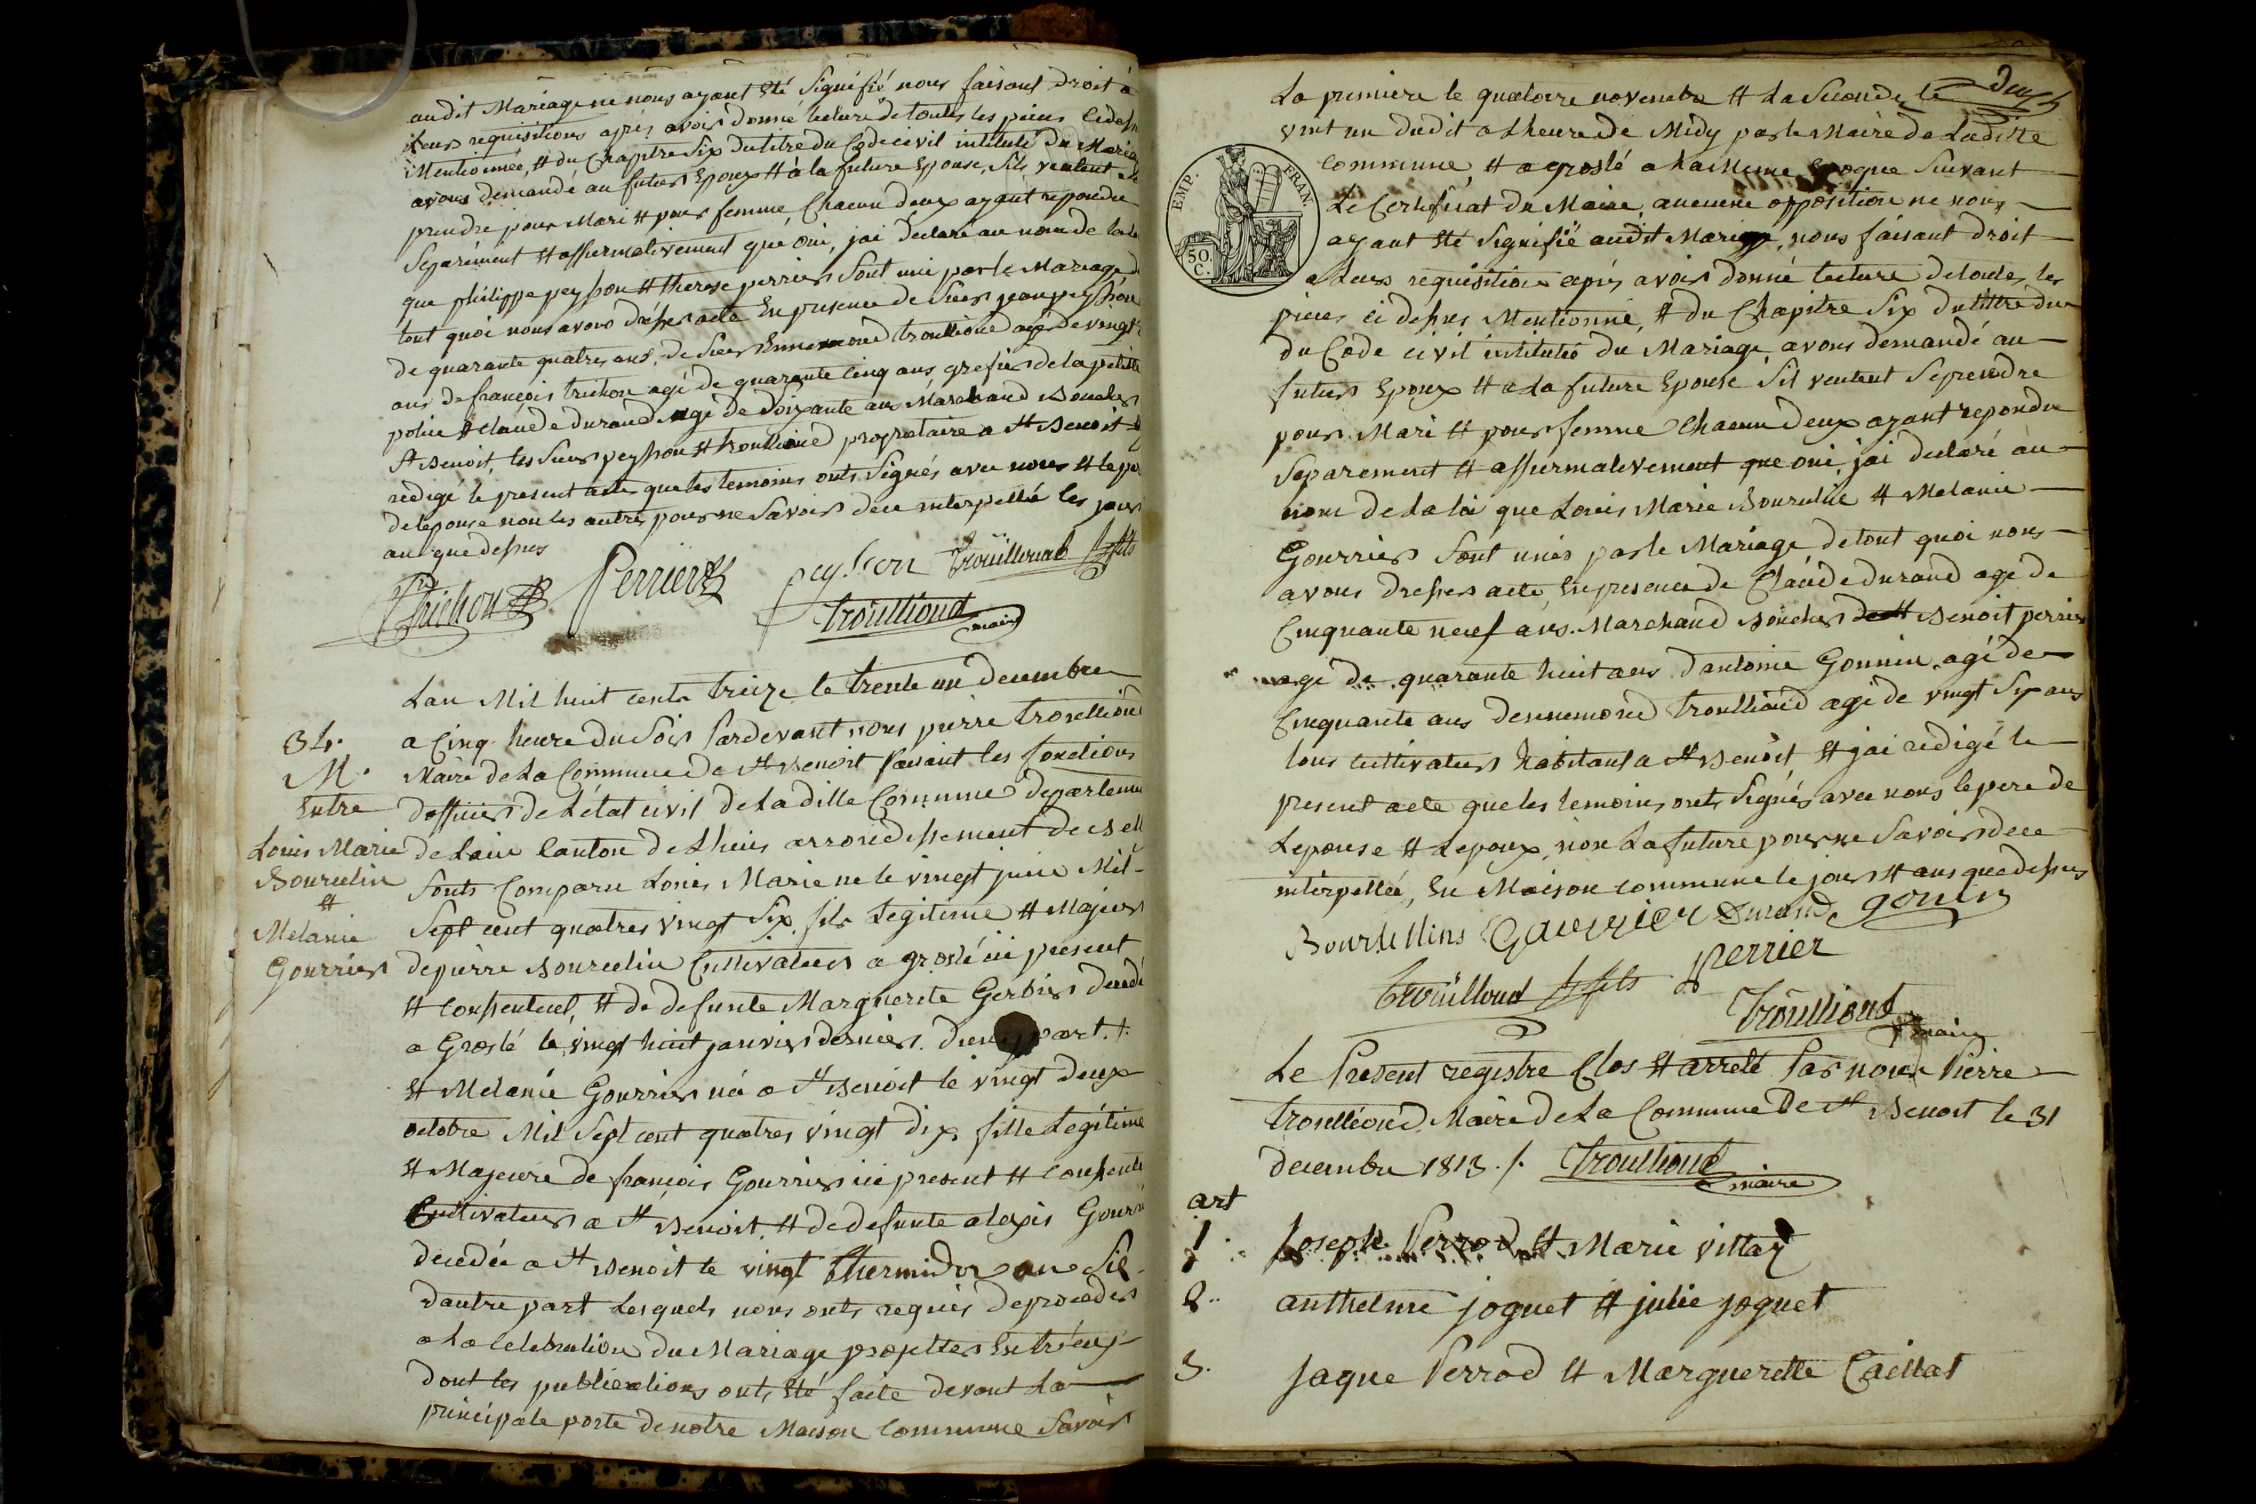 audit Mariage ne nous ayant Eté Signifié nous faisant Droit à
Leurs requisitions après avoir Donné lecture de toutes les pieces Cidess
Mentionnée, et du Chapitre Six du titre du Code civil intitulé Du Maria
avons demandé au futur Epoux et à la future Epouse, Sils veulent se
prendre pour Mari et pour femme, Chacun deux ayant repondu
Separément et affirmativement que oui, jai Declaré au nom de la loi
que philippe peysson et therese perrier Sont uni par le Mariage d
tout quoi nous avons Dressé acte En presence de Sieur jean peysson
de quarante quatres ans, de Sieur Ennemond trouilloud agé de vingt
ans de françois truchon agé de quarante Cinq ans grefier de la petitte
police et Claude Durand agé de Soixante ans Marchand Boucher
St Benoit, les Sieurs peysson et trouilloud proprietaire a St Benoit et
redigé le present acte que les temoins onts Signés avec nous et le per
de lepouse non les autres pour ne Savoir dece interpellé les jour
an que dessus
Truchon Perrier peysson Trouilloud fils
Trouilloud maire
Lan Mil huit cents treize le trente un decembre
34. a Cinq heure du Soir Pardevant nous pierre trouilloud
M. Maire de la Commune de St Benoit faisant les fonctions
Entre dofficier de Létat civil de la ditte Commune departemen
Louis Marie de Lain Canton de Lhuis arrondissement de Bell
Bourdin Sonts Comparu Louis Marie né le vingt juin Mil-
et Sept cent quatres vingt Six fils Legitime et Majeur
Melanie de pierre Bourdin Cultivateur a groslé ici present
Gourrier et consentent, et de defunte Marguerite Gerbier decedé
a Groslé le vingt huit janvier dernier. Dune part. +
et Melanie Gourrier né a St Benoit le vingt deux
octobre Mil Sept cent quatres vingt dix fille Legitime
et Majeure de françois Gourrier ici present et consente
Cultivateur a St Benoit, et de defunte alexis Gourri
decedée a St Benoit le vingt thermidor an
dautre part Lesquels nous onts requis de proceder
a La Celebration du Mariage projetter Entre eux
dont les publications onts Eté faite devant La
principale porte de notre Maison Commune Savoir
La premiere le quatorze novembre et La Seconde le
vint un dudit a Lheure de Midy par le Maire de Laditte
EMP. FRAN.
50. C.
commune, et a groslé a La Meme Epoque Suivant
Le Certificat du Maire, aucune opposition ne nous
ayant Eté Signifié audit Mariage, nous faisant Droit
a Leurs requisition après avoir donné Lecture de toutes les
pieces ci dessus Mentionné, et du Chapitre Six du tittre du
du Code civil intitulé du Mariage, avons demandé au
futur Epoux et a La future Epouse Sil veulent Seprendre
pour Mari et pour femme Chacun deux ayant repondu
Separement et affirmativement que oui, jai declaré au
nom de La loi que Louis Marie Bourdin et Melanie
Gourrier Sont unis par le Mariage, de tout quoi nous
avons Dresser acte En presence de Claude Durand agé de
Cinquante neuf ans. Marchand Boucher de St Benoit perrier
agé de quarante huit ans dantoine Gonnin agé de
Cinquante ans dennemond Trouilloud agé de vingt Six ans
tous Cultivateurs habitant a St Benoit et jai redigé le
present acte que les temoins onts Signés avec nous le pere de
Lepouse et Lepoux, non La future pour ne Savoir dece
interpellée, En Maison commune le jour et an que dessus
Gourrier Durand gonin
Trouilloud fils perrier
Trouilloud maire
Le Present registre Clos et arreté Par nous Pierre
trouilloud Maire de La Commune de St Benoit le 31
decembre 1813./. Trouilloud
maire
art
1. Joseph Perrod et Marie vittaz
2. anthelme joguet et julie joguet
3. Jaque Perrod et Marguerette Caillat